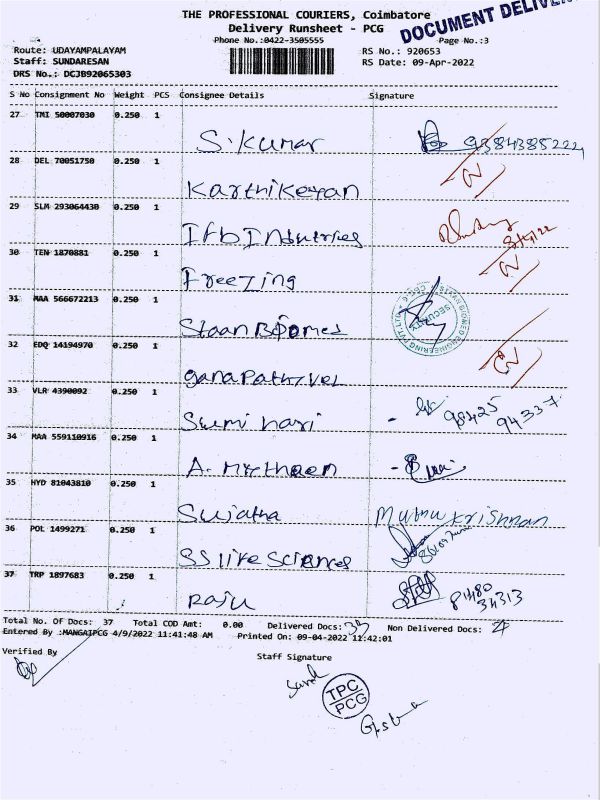 THE PROFESSIONAL COURIERS, Coimbatore
Delivery Runsheet - PCG
DOCUMENT
Phone No.:0422-3505555
Page No.:3
Route: UDAYAMPALAYAM
RS No.: 920653
Staff: SUNDARESAN
RS Date: 09-Apr-2022
DRS No.: DCJB92065303
S No Consignment No Weight PCS Consignee Details Signature
27 TMI 50007030 0.250 1
S.Kumar 9384385222
28 DEL 70051750 0.250 1
Karthikeyan
29 SLM 293064430 0.250 1
30 TEN 1870881 0.250 1
Freezing
31 MAA 566672213 0.250 1
SECURITY
32 EDQ 14194970 0.250 1
ganapathyvel
33 VLR 4390092 0.250 1
Sumi hari 98425
94337
34 MAA 559110916 0.250 1
35 HYD 81043810 0.250 1
Sujatha Muthu Krishnan
36 POL 1499271 0.250 1
SS life Sciences
37 TRP 1897683 0.250 1
Raju
34313
Total No. Of Docs: 37 Total COD Amt: 0.00 Delivered Docs: Non Delivered Docs:
Entered By :MANGAIPCG 4/9/2022 11:41:48 AM Printed On: 09-04-2022 11:42:01
Verified By
Staff Signature
TPC
PCG